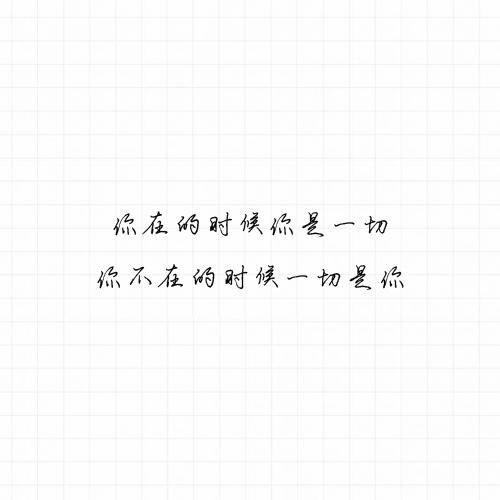 你在的时候你是一切
你不在的时候一切是你